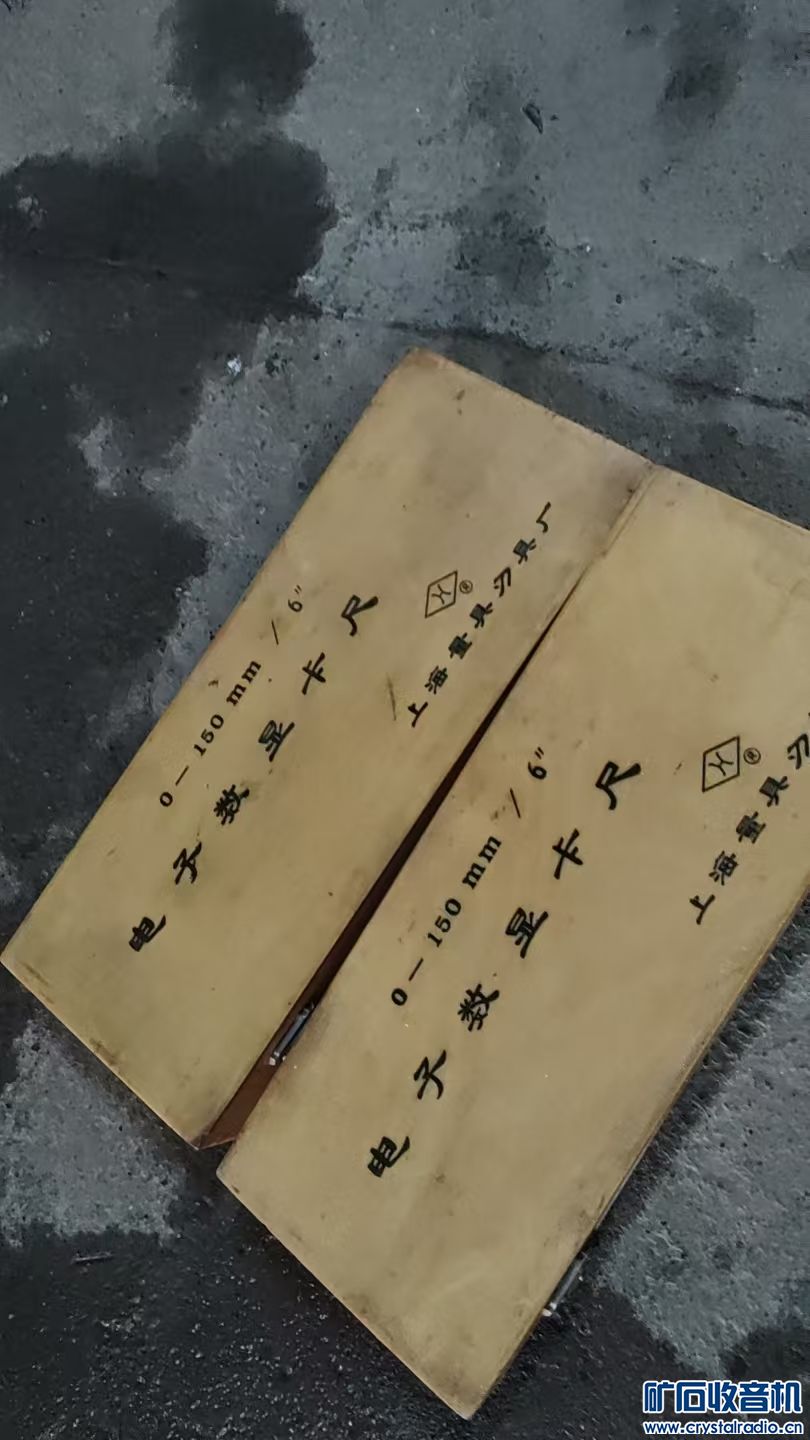 0—150 mm / 6"
电子数显卡尺
上海量具刃具厂
0—150 mm / 6"
电子数显卡尺
上海量具刃
矿石收音机
www.crystalradio.cn